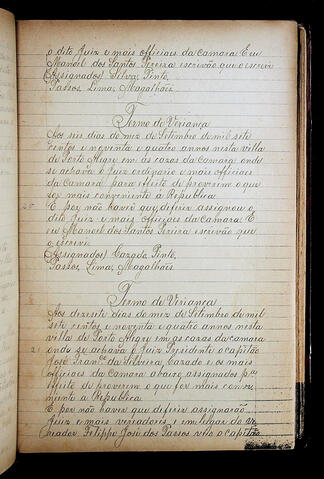 o dito Juiz e mais officiais da camara E eu
Manoel dos Santos Pereira escrivão que o escrevi
(Assignados) Silva, Pinto,
Passos, Lima, Magalhais.
Termo de Veriança
Aos seis dias do mez de Setembro de mil sete
centos e noventa e quatro annos nesta villa
de Porto Alegre em as cazas da Camara onde
se achava o Juiz ordinario e mais officiaes
da Camara para effeito de proverem o que
for mais conveniente á Republica
E por não haver que difirir assignou o
dito Juiz e mais Officiaes da camara. E
eu Manoel dos Santos Pereira escrivão que
o escrevi
(Assignados) Cazado Pinto,
Passos, Lima, Magalhais.
Termo de Veriança
Aos dezesete dias do mez de Setembro de mil
sete centos e noventa e quatro annos nesta
villa de Porto Alegre em as cazas da camara
onde se achava o Juiz Presidente o capitão
José Franco da Silveira Cazado e os mais
officiaes da Camara abaixo assignados pa
effeito de proverem o que for mais conve
niente a Republica
E por não haver que difirir assignarão
Juiz e mais veriadores, e em lugar do ve
riador Felippe José dos Passos veio o capitão